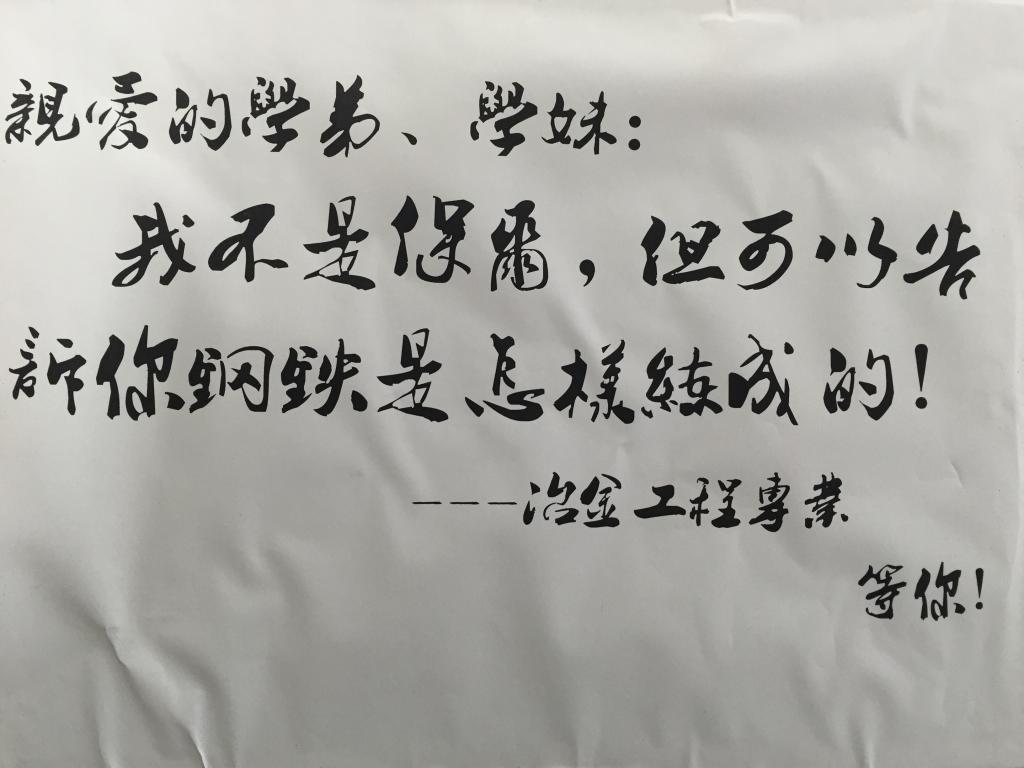 親愛的學弟、學妹：
我不是保爾，但可以告
訴你鋼鉄是怎樣練成的！
---冶金工程專業
等你！